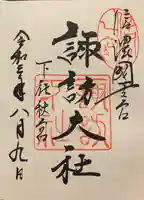 信濃國一之宮
諏訪大社
下社秋宮
令和三年八月九日